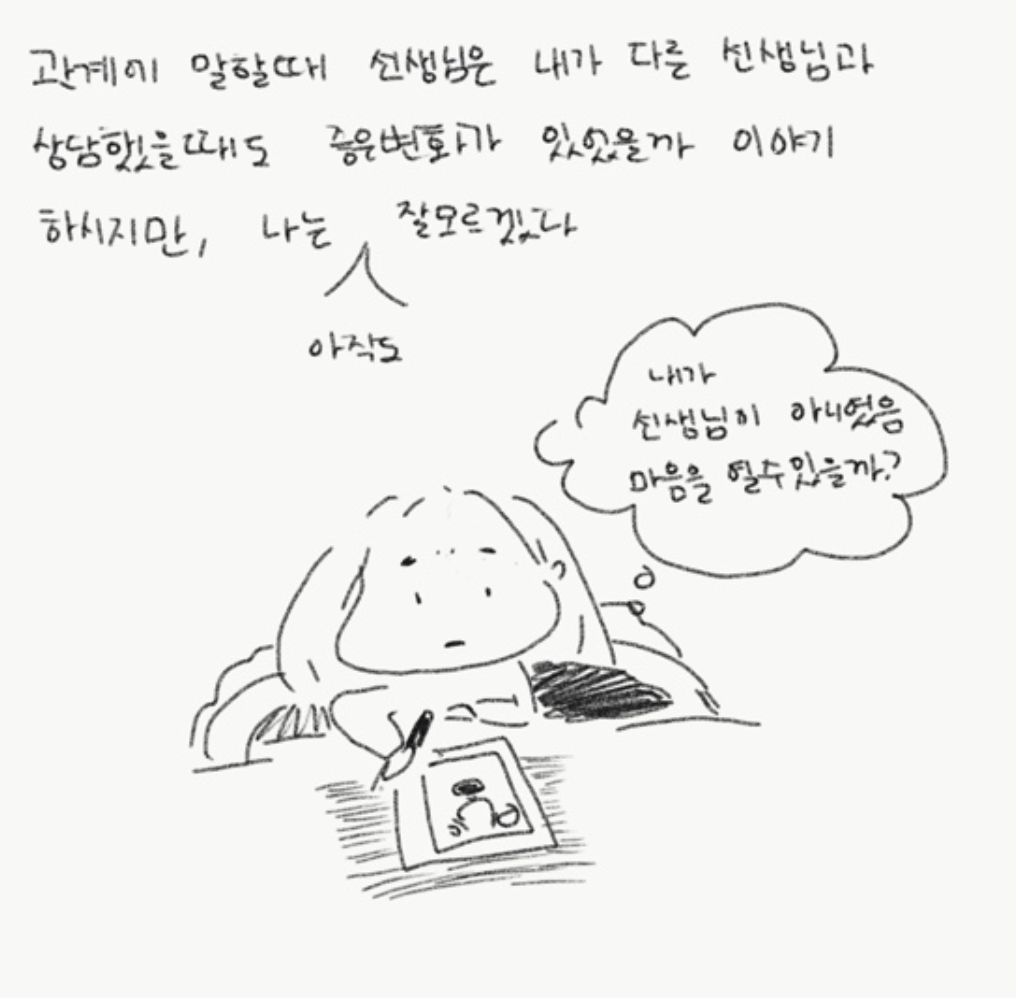 관계에 말할때 선생님은 내가 다른 선생님과
상담했을때도 좋은변화가 있었을까 이야기
하시지만, 나는 잘모르겠다
아직도
내가
선생님이 아니었음
마음을 열수있을까?